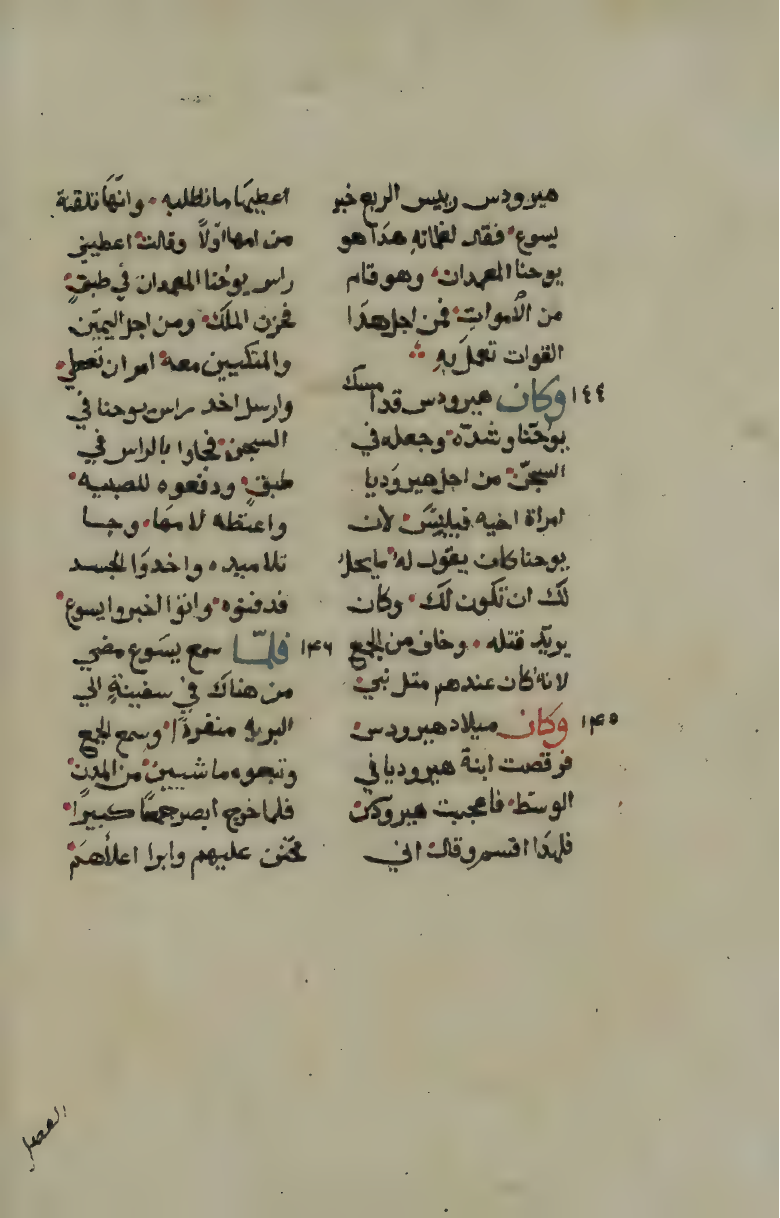 هيرودس رييس الربع خبر
يسوع فقال لغلمانه هدا هو
يوحنا المعمدان وهو قام
من الأموات فمن اجل هدا
القوات تعمل به
١٤٤ وكان هيرودس قد امسك
يوحنا وشده وجعله في
السجن من اجل هيروديا
امراة اخيه فيلبس لان
يوحنا كان يقول له ما يحل
لك ان تكون لك وكان
يريد قتله وخاف من الجمع
لانه كان عندهم متل نبي
١٤٥ وكان ميلاد هيرودس
فرقصت ابنة هيروديا في
الوسط فاعجبت هيرودس
فلهدا اقسم وقال اني
اعطيها ما تطلبه وانها تلقنة
من امها اولا وقالت اعطيني
راس يوحنا المعمدان في طبق
فحزن الملك ومن اجل اليمين
والمتكيين معه امر ان تعطي
وارسل اخد راس يوحنا في
السجن فجاوا بالراس في
طبق ودفعوه للصبيه
واعطته لامها وجا
تلاميده واخدوا الجسد
فدفنوه واتوا اخبروا يسوع
١٤٦ فلما سمع يسوع مضي
من هناك في سفينة الي
البريه منفردا وسمع الجمع
وتبعوه ماشيين من المدن
فلما خرج ابصر جمعا كبيرا
فتحنن عليهم وابرا اعلاهم